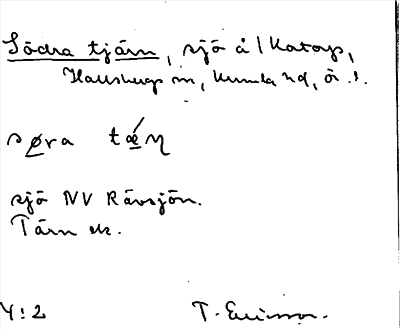 Södra tjärn, sjö å /Katorp,
Hallsbergs sn, Kumla hd, ör. l.
søra tǽɳ
sjö NV Rävsjön.
Tärn
4:2 T. Ericsson.